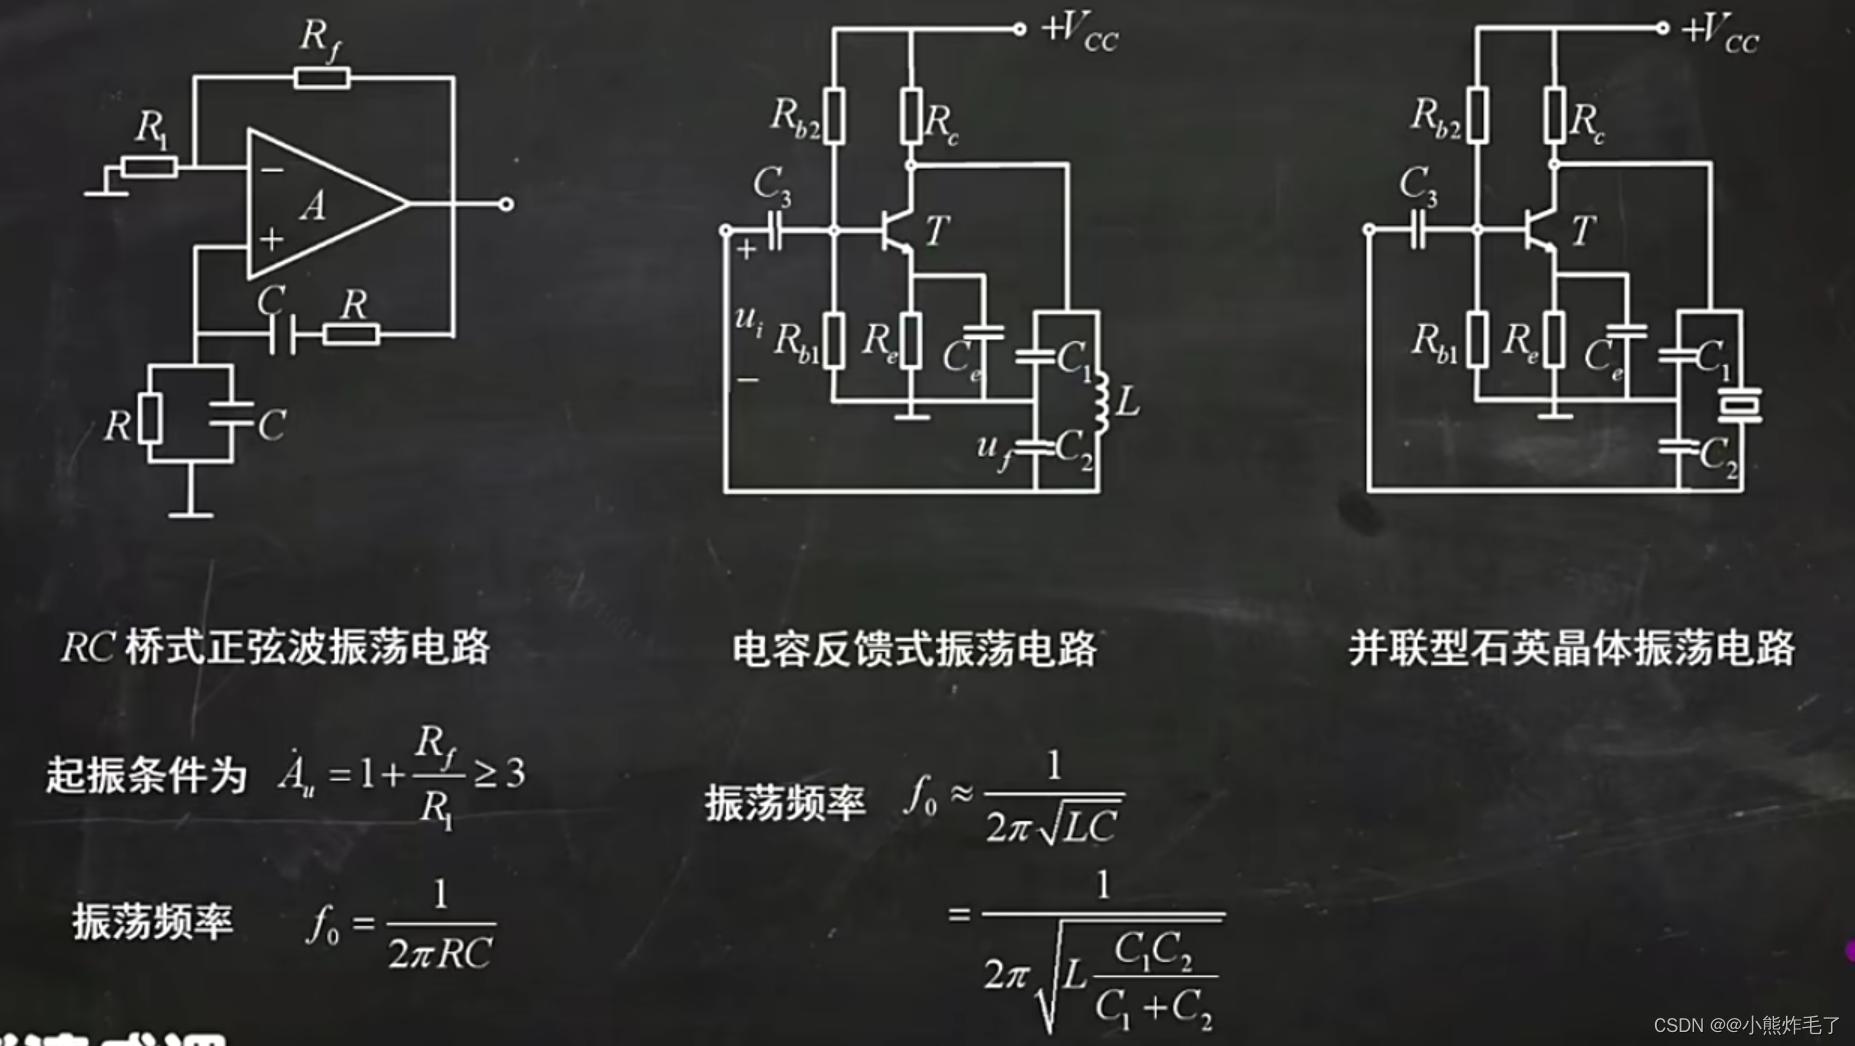 R_f
R_1
−
A
+
C
R
R
C
+V_CC
R_b2
R_c
C_3
T
+
u_i
−
R_b1
R_e
C_e
C_1
L
u_f
C_2
+V_CC
R_b2
R_c
C_3
T
R_b1
R_e
C_e
C_1
C_2
RC 桥式正弦波振荡电路
电容反馈式振荡电路
并联型石英晶体振荡电路
起振条件为 Ȧ_u = 1 + R_f / R_1 ≥ 3
振荡频率 f_0 = 1 / 2πRC
振荡频率 f_0 ≈ 1 / 2π√LC
= 1 / 2π√(L C_1C_2 / C_1+C_2)
CSDN @@小熊炸毛了